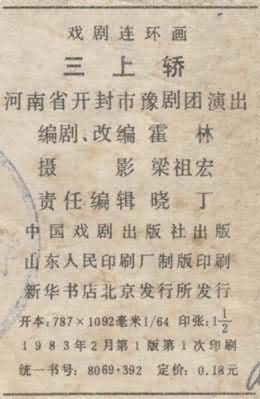 戏剧连环画
三上轿
河南省开封市豫剧团演出
编剧、改编 霍 林
摄 影 梁祖宏
责任编辑 晓 丁
中国戏剧出版社出版
山东人民印刷厂制版印刷
新华书店北京发行所发行
开本:787×1092毫米1/64 印张:1 1/2
1983年2月第1版第1次印刷
统一书号:8069·392 定价:0.18元